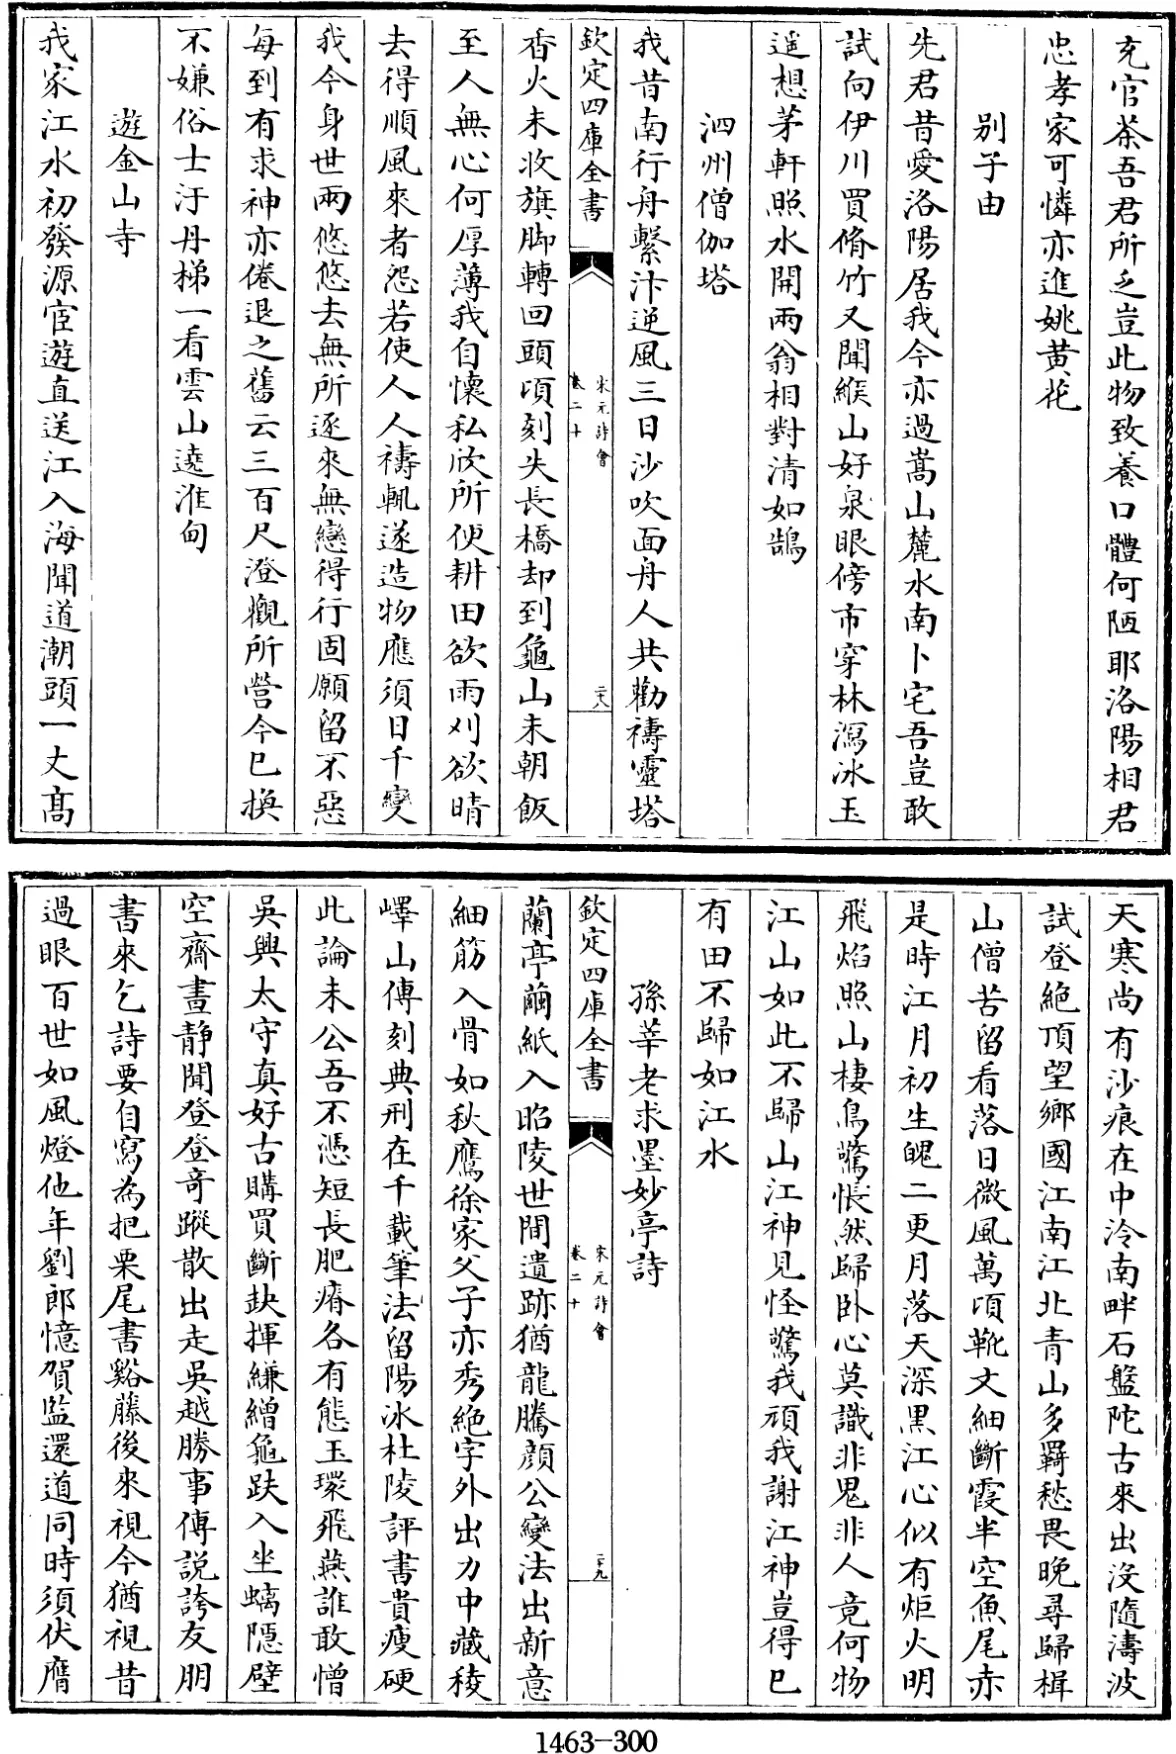 充官茶吾君所乏豈此物致養口體何陋耶洛陽相君
忠孝家可憐亦進姚黄花
别子由
先君昔愛洛陽居我今亦過嵩山麓水南卜宅吾豈敢
試向伊川買脩竹又聞緱山好泉眼傍市穿林瀉冰玉
遥想茅軒照水開兩翁相對清如鵠
泗州僧伽塔
我昔南行舟繫汴逆風三日沙吹面舟人共勸禱靈塔
欽定四庫全書
宋元詩會
卷二十
二十八
香火未收旗脚轉回頭頃刻失長橋却到龜山未朝飯
至人無心何厚薄我自懷私欣所便耕田欲雨刈欲晴
去得順風來者怨若使人人禱輒遂造物應須日千變
我今身世兩悠悠去無所逐來無戀得行固願留不惡
每到有求神亦倦退之舊云三百尺澄觀所營今已換
不嫌俗士汙丹梯一看雲山遶淮甸
遊金山寺
我家江水初發源宦遊直送江入海聞道潮頭一丈髙
天寒尚有沙痕在中泠南畔石盤陀古來出沒隨濤波
試登絶頂望鄉國江南江北青山多羇愁畏晚尋歸楫
山僧苦留看落日微風萬頃靴文細斷霞半空魚尾赤
是時江月初生魄二更月落天深黒江心似有炬火明
飛焰照山棲鳥驚悵然歸卧心莫識非鬼非人竟何物
江山如此不歸山江神見怪驚我頑我謝江神豈得已
有田不歸如江水
孫莘老求墨妙亭詩
欽定四庫全書
宋元詩會
卷二十
二十九
蘭亭繭紙入昭陵世間遺跡猶龍騰顔公變法出新意
細筋入骨如秋鷹徐家父子亦秀絶字外出力中藏稜
嶧山傳刻典刑在千載筆法留陽冰杜陵評書貴瘦硬
此論未公吾不憑短長肥瘠各有態玉環飛燕誰敢憎
吳興太守真好古購買斷缺揮縑繒龜趺入坐螭隠壁
空齋晝静聞登登奇蹤散出走吳越勝事傳説誇友朋
書來乞詩要自寫為把栗尾書谿藤後來視今猶視昔
過眼百世如風燈他年劉郎憶賀監還道同時須伏膺
1463-300